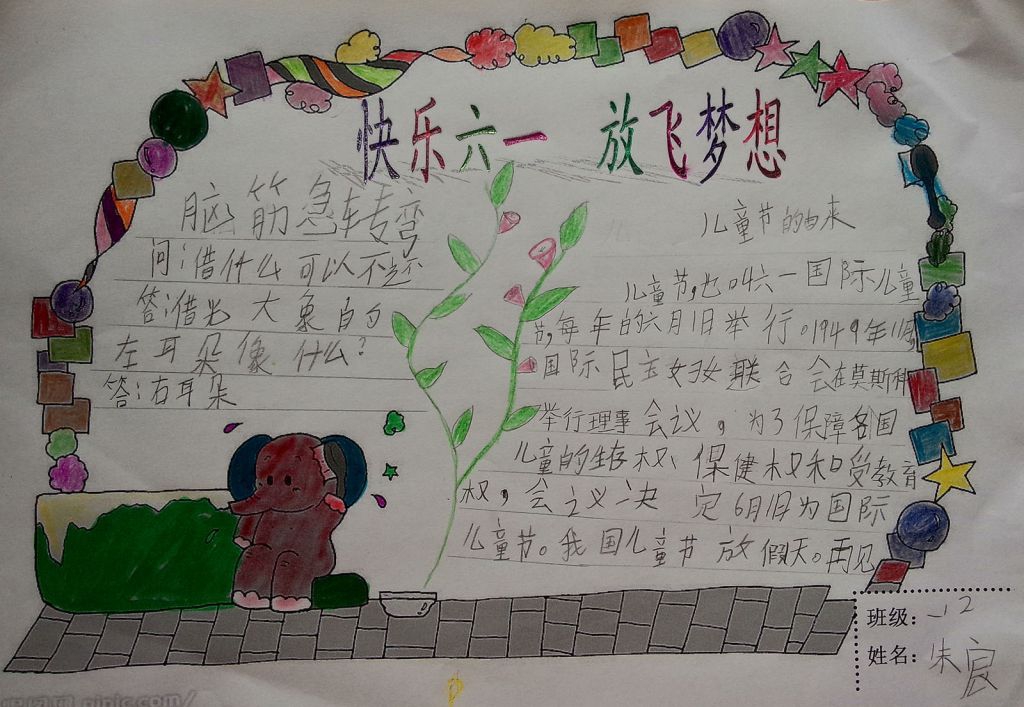 快乐六一 放飞梦想
脑筋急转弯
问:借什么可以不还
答:借光 大象的
左耳朵像什么?
答:右耳朵
儿童节的由来
儿童节,也叫六一国际儿童
节,每年的六月1日举行。1949年11月,
国际民主妇女联合会在莫斯科
举行理事会议,为了保障各国
儿童的生存权、保健权和受教育
权,会议决定6月1日为国际
儿童节。我国儿童节放假天。再见
班级:一12
姓名:朱宸